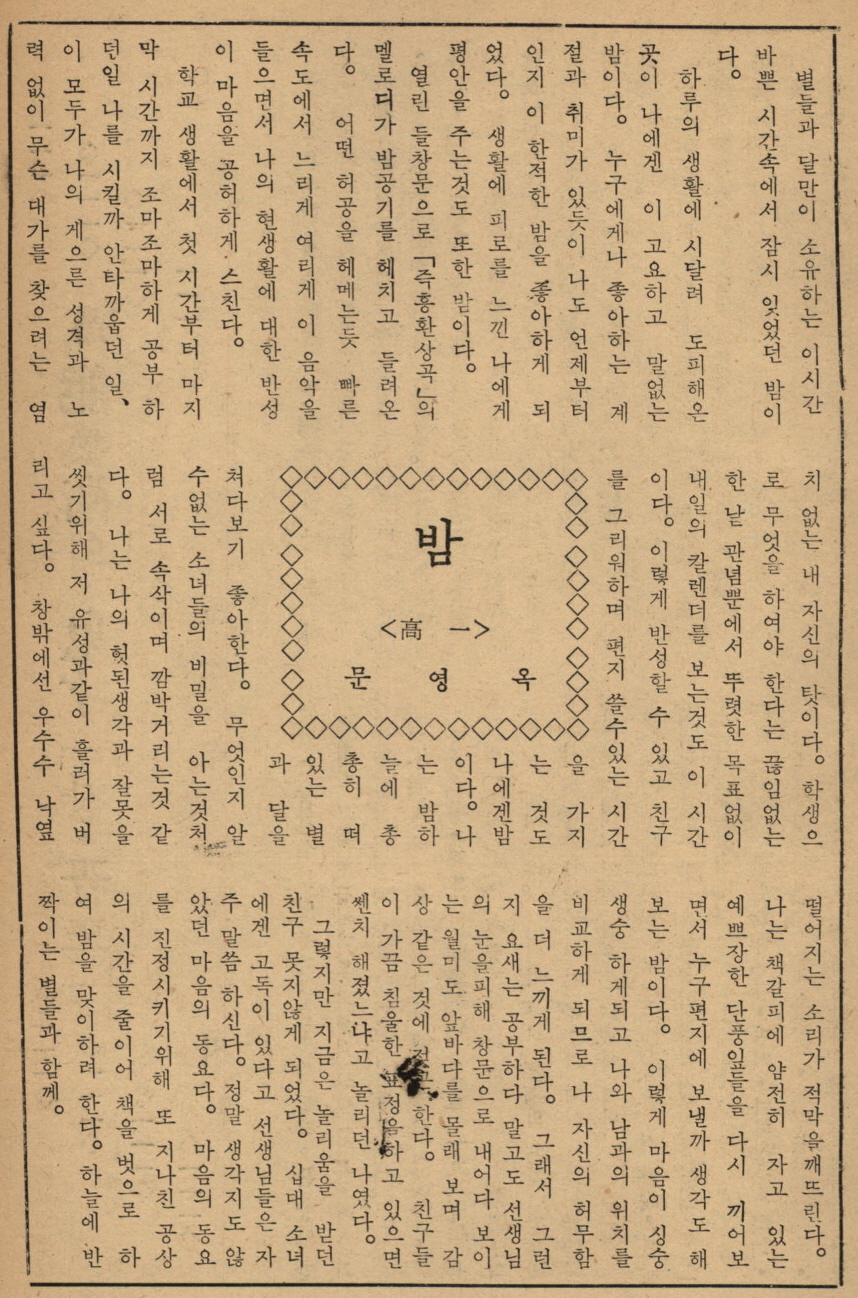 밤
<高一>
문영옥
별들과 달만이 소유하는 이시간
바쁜 시간속에서 잠시 잊었던 밤이
다。
하루의 생활에 시달려 도피해온
곳이 나에겐 이 고요하고 말없는
밤이다。 누구에게나 좋아하는 계
절과 취미가 있듯이 나도 언제부터
인지 이 한적한 밤을 좋아하게 되
었다。 생활에 피로를 느낀 나에게
평안을 주는것도 또한 밤이다。
열린 들창문으로 「즉흥환상곡」의
멜로디가 밤공기를 헤치고 들려온
다。 어떤 허공을 헤메는듯 빠른
속도에서 느리게 여리게 이 음악을
들으면서 나의 현생활에 대한 반성
이 마음을 공허하게 스친다。
학교 생활에서 첫 시간부터 마지
막 시간까지 조마조마하게 공부 하
던일 나를 시킬까 안타까움던 일、
이 모두가 나의 게으른 성격과 노
력 없이 무슨 대가를 찾으려는 염
치 없는 내 자신의 탓이다。 학생으
로 무엇을 하여야 한다는 끊임없는
한 낱 관념뿐에서 뚜렷한 목표없이
내일의 칼렌더를 보는것도 이 시간
이다。 이렇게 반성할 수 있고 친구
를 그리워하며 편지 쓸수있는 시간
을 가지
는 것도
나에겐밤
이다。 나
는 밤하
늘에 총
총히 떠
있는 별
과 달을
쳐다보기 좋아한다。 무엇인지 알
수없는 소녀들의 비밀을 아는것처
럼 서로 속삭이며 깜박거리는것 같
다。 나는 나의 헛된생각과 잘못을
씻기위해 저 유성과같이 흘러가 버
리고 싶다。 창밖에선 우수수 낙엪
떨어지는 소리가 적막을깨뜨린다。
나는 책갈피에 얌전히 자고 있는
예쁘장한 단풍잎들을 다시 끼어보
면서 누구편지에 보낼까 생각도 해
보는 밤이다。 이렇게 마음이 싱숭
생숭 하게되고 나와 남과의 위치를
비교하게 되므로 나 자신의 허무함
을 더 느끼게 된다。 그래서 그런
지 요새는 공부하다 말고도 선생님
의 눈을피해 창문으로 내어다 보이
는 월미도 앞바다를 몰래 보며 감
상 같은 것에 한다。 친구들
이 가끔 침울한 표정을하고 있으면
쎈치 해졌느냐고 놀리던 나였다。
그렇지만 지금은 놀리움을 받던
친구 못지않게 되었다。 십대 소녀
에겐 고독이 있다고 선생님들은 자
주 말씀 하신다。 정말 생각지도 않
았던 마음의 동요다。 마음의 동요
를 진정시키기위해 또 지나친 공상
의 시간을 줄이어 책을 벗으로 하
여 밤을 맞이하려 한다。 하늘에 반
짝이는 별들과 함께。